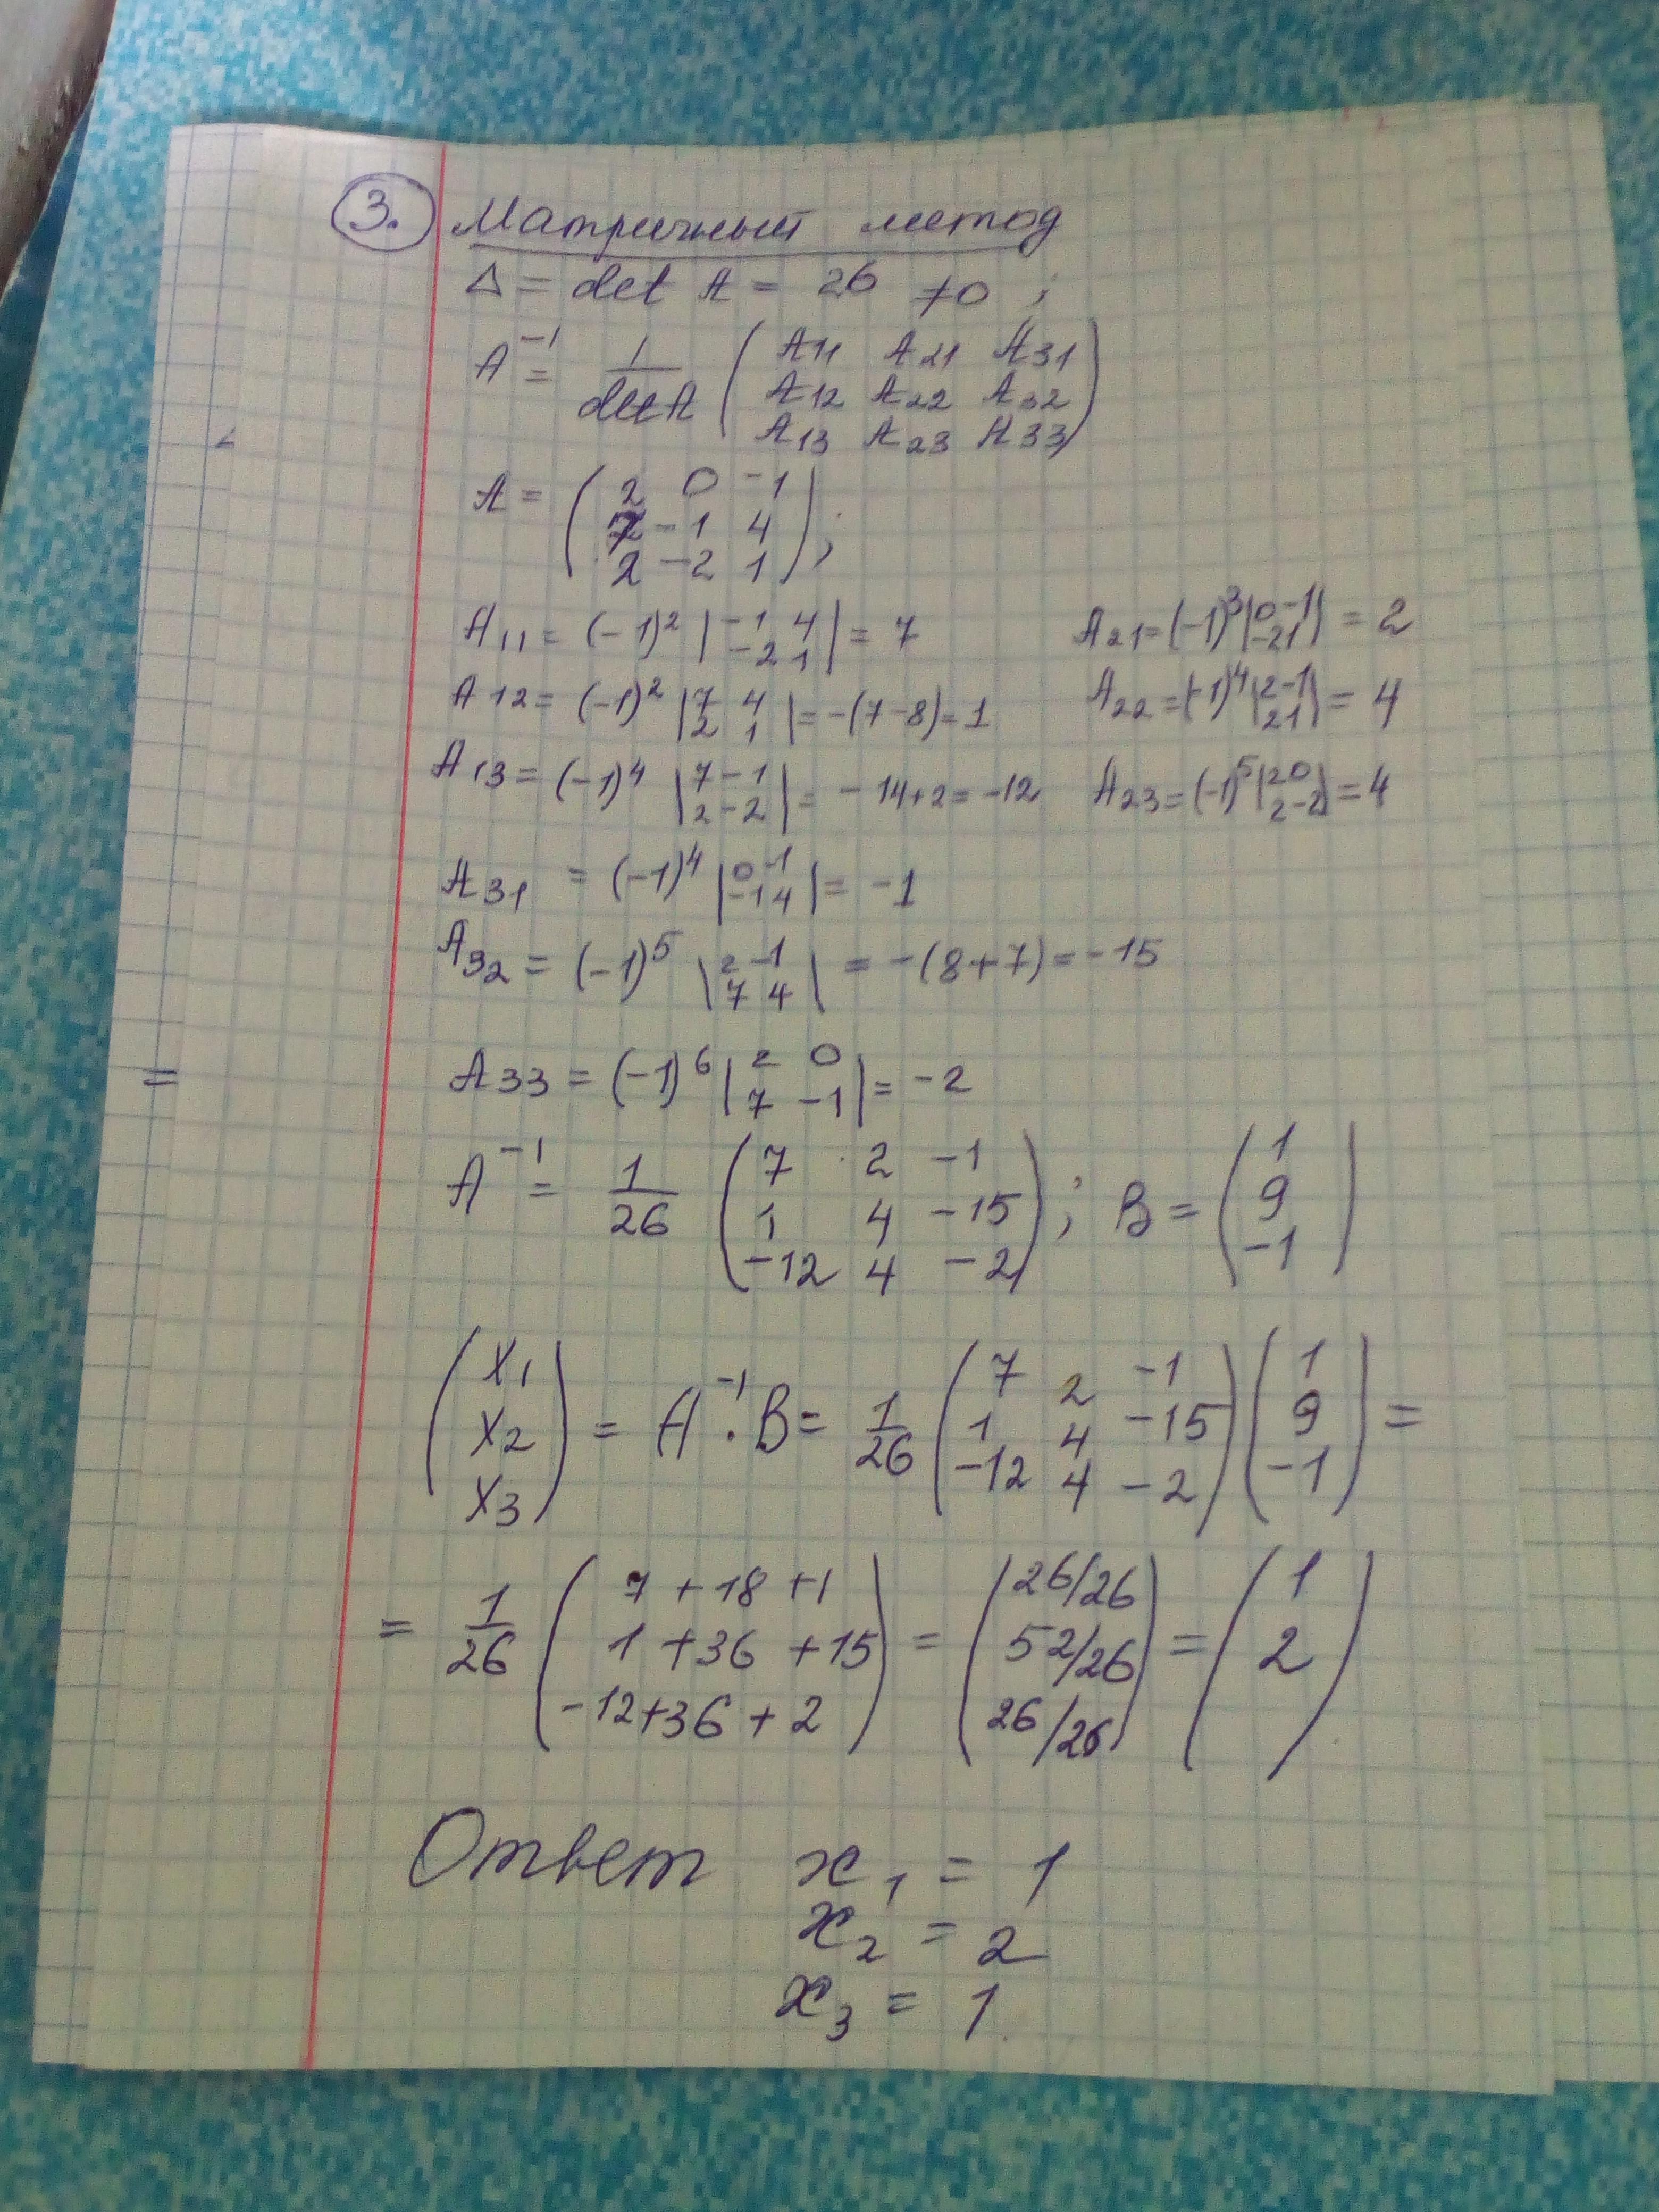 3. Матричный метод
Δ = det A = 26 ≠0 ;
A⁻¹ = 1/detA ( A11 A21 A31
A12 A22 A32
A13 A23 A33 )
A = ( 2 0 -1
7 -1 4
2 -2 1 ) ;
A11 = (-1)² | -1 4 | = 7 A21 = (-1)³ | 0 -1 | = 2
-2 1 -2 1
A12 = (-1)² | 7 4 | = -(7-8) = 1 A22 = (-1)⁴ | 2 -1 | = 4
2 1 2 1
A13 = (-1)⁴ | 7 -1 | = -14+2 = -12 A23 = (-1)⁵ | 2 0 | = 4
2 -2 2 -2
A31 = (-1)⁴ | 0 -1 | = -1
-1 4
A32 = (-1)⁵ | 2 -1 | = -(8+7) = -15
7 4
=
A33 = (-1)⁶ | 2 0 | = -2
7 -1
A⁻¹ = 1/26 ( 7 2 -1 ) ; B = ( 1
1 4 -15 9
-12 4 -2 -1 )
( x1
x2 ) = A⁻¹ · B = 1/26 ( 7 2 -1 ) ( 1 ) =
x3 1 4 -15 9
-12 4 -2 -1
= 1/26 ( 7 + 18 + 1 ) = ( 26/26 ) = ( 1
1 + 36 + 15 52/26 2 )
-12+36 + 2 26/26
Ответ x1 = 1
x2 = 2
x3 = 1